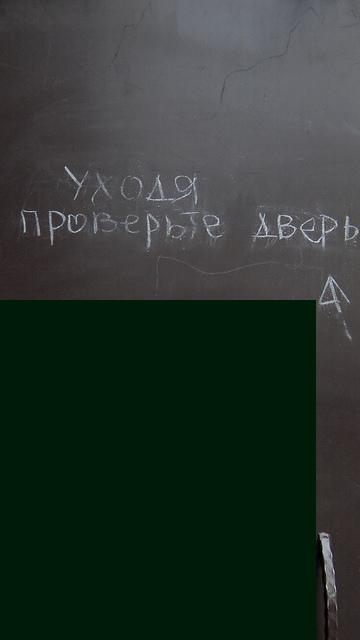 уходя
проверьте дверь